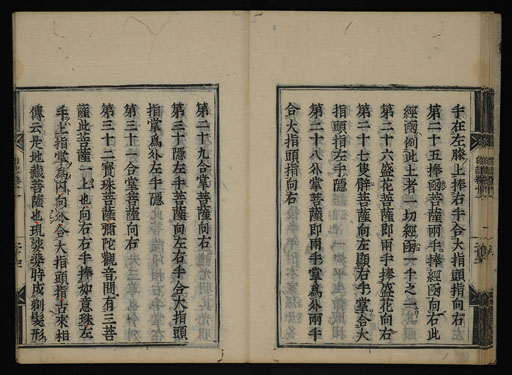 手在左膝上捧右手合大指頭指向左
第二十五捧國菩薩兩手捧經國向右此
經國例此土者一切經國一半之二
第二十六盛花菩薩即兩手捧盛花向右
第二十七隻臂菩薩向左顯右手掌合大
指頭指左手隱
第二十八外掌菩薩即兩手掌為外兩手
合大指頭指向右
第二十九合掌菩薩向右
第三十隱左手菩薩向左右手合大指頭
指掌為外左手隱
第三十一合掌菩薩向右
第三十二寶珠菩薩彌陀觀音間有三菩
薩此菩薩一上也向右右手捧如意珠左
手上指掌為內向外合大指頭指古來相
傳云是地藏菩薩也現染時成剃髮形